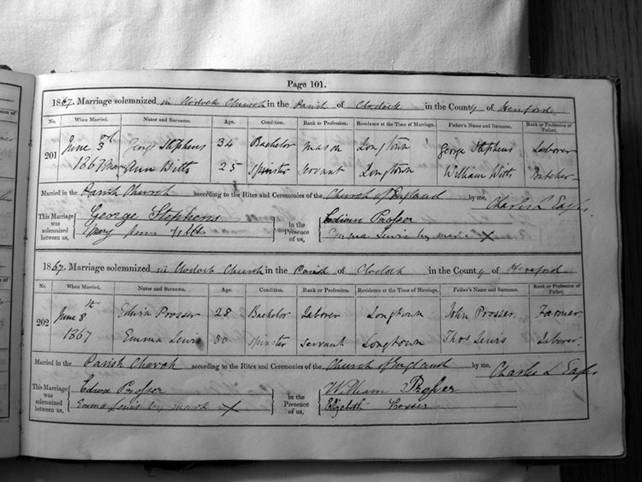 Page 101.
1867. Marriage solemnized in Clodock Church in the Parish of Clodock in the County of Hereford
No. When Married. Name and Surname. Age. Condition. Rank or Profession. Residence at the Time of Marriage. Father's Name and Surname. Rank or Profession of Father.
201 June 3rd George Stephens 34 Bachelor Mason Longtown George Stephens Laborer
1867 Ann Witts 25 Spinster Servant Longtown William Witts Butcher
Married in the Parish Church according to the Rites and Ceremonies of the Church of England by me, Charles L Eagles
This Marriage was solemnized between us, George Stephens in the Presence of us, Edwin Prosser
Mary Anne Witts Emma Lewis by mark X
1867. Marriage solemnized in Clodock Church in the Parish of Clodock in the County of Hereford
No. When Married. Name and Surname. Age. Condition. Rank or Profession. Residence at the Time of Marriage. Father's Name and Surname. Rank or Profession of Father.
202 June 8th Edwin Prosser 28 Bachelor Laborer Longtown John Prosser Farmer
1867 Emma Lewis 30 Spinster Servant Longtown Thos Lewis Laborer
Married in the Parish Church according to the Rites and Ceremonies of the Church of England by me, Charles L Eagles
This Marriage was solemnized between us, Edwin Prosser in the Presence of us, William Prosser
Emma Lewis by mark X Elizabeth Prosser